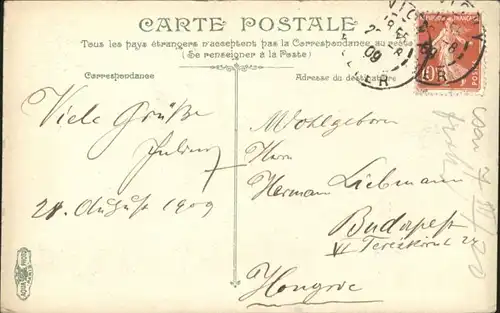 CARTE POSTALE
Tous les pays étrangers n'acceptent pas la Correspondance au recto
(Se renseigner à la Poste)
Correspondance
Adresse du destinataire
Viele Grüße
Julius
28. August 1909
Wohlgeboren
Herrn
Hermann Liebmann
Budapest
VI Terézkörut 24
Hongrie
10
09
AQUA PHOTO
PARIS